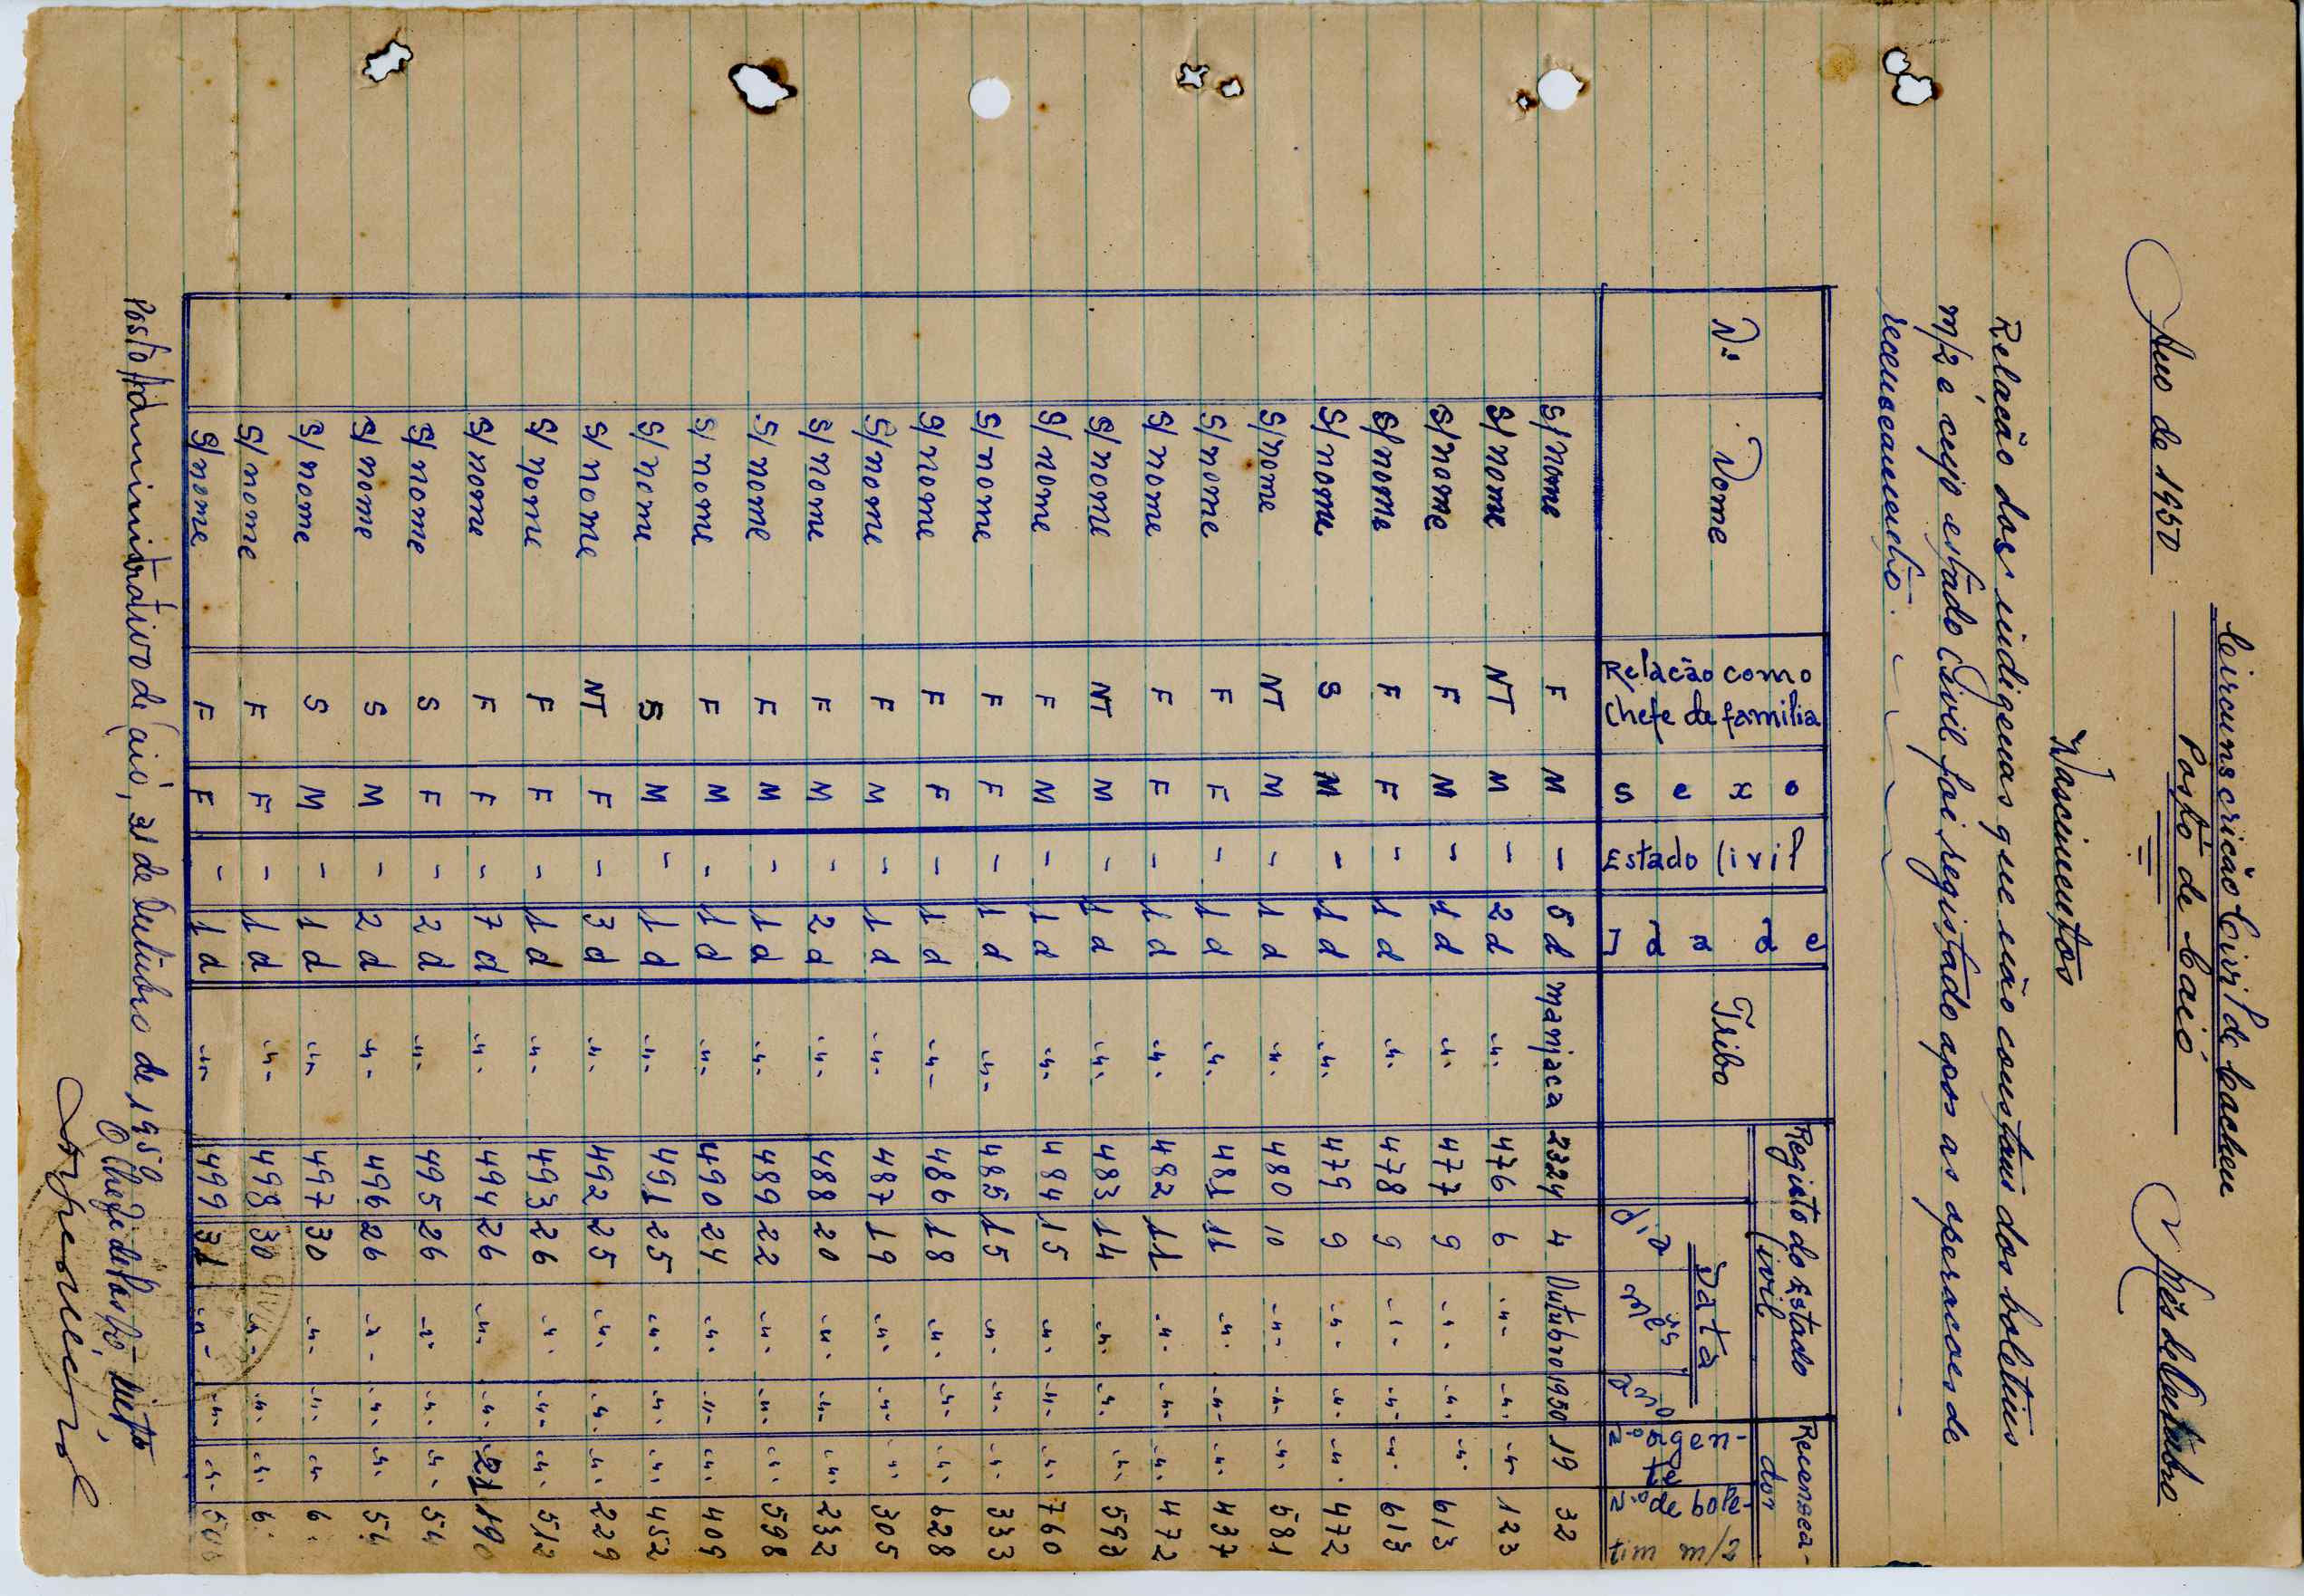 Circunscrição Civil de Cacheu
Posto de Caió
Ano de 1950 Mês de Outubro
Nascimentos
Relação dos indigenas que não constam dos boletins
m/2 e cujo estado Civil foi registado apos as operacoes de
recenseamento.
Nº Nome Relacão como Chefe da familia Sexo Estado Civil Idade Tribo Registo do Estado Civil Data Dia Mês Ano Recenseador Nº agente Nº de boletim m/2
S/ nome F M - 5 d manjaca 2324 4 Outubro 1950 19 32
S/ nome NT M - 2 d -"- 476 6 -"- -"- -"- 123
S/ nome F M - 1 d -"- 477 9 -"- -"- -"- 613
S/ nome F F - 1 d -"- 478 9 -"- -"- -"- 613
S/ nome S M - 1 d -"- 479 9 -"- -"- -"- 472
S/ nome NT M - 1 d -"- 480 10 -"- -"- -"- 581
S/ nome F F - 1 d -"- 481 11 -"- -"- -"- 437
S/ nome F F - 1 d -"- 482 11 -"- -"- -"- 472
S/ nome NT M - 1 d -"- 483 14 -"- -"- -"- 593
S/ nome F M - 1 d -"- 484 15 -"- -"- -"- 760
S/ nome F F - 1 d -"- 485 15 -"- -"- -"- 333
S/ nome F F - 1 d -"- 486 18 -"- -"- -"- 628
S/ nome F M - 1 d -"- 487 19 -"- -"- -"- 305
S/ nome F M - 2 d -"- 488 20 -"- -"- -"- 232
S/ nome F M - 1 d -"- 489 22 -"- -"- -"- 598
S/ nome F M - 1 d -"- 490 24 -"- -"- -"- 409
S/ nome S M - 1 d -"- 491 25 -"- -"- -"- 452
S/ nome NT F - 3 d -"- 492 25 -"- -"- -"- 229
S/ nome F F - 1 d -"- 493 26 -"- -"- -"- 512
S/ nome F F - 7 d -"- 494 26 -"- -"- 21 190
S/ nome S F - 2 d -"- 495 26 -"- -"- -"- 54
S/ nome S M - 2 d -"- 496 26 -"- -"- -"- 54
S/ nome S M - 1 d -"- 497 30 -"- -"- -"- 6
S/ nome F F - 1 d -"- 498 30 -"- -"- -"- 6
S/ nome F F - 1 d -"- 499 31 -"- -"- -"-
Posto Administrativo de Caió, 31 de Outubro de 1950
O Chefe de Posto,